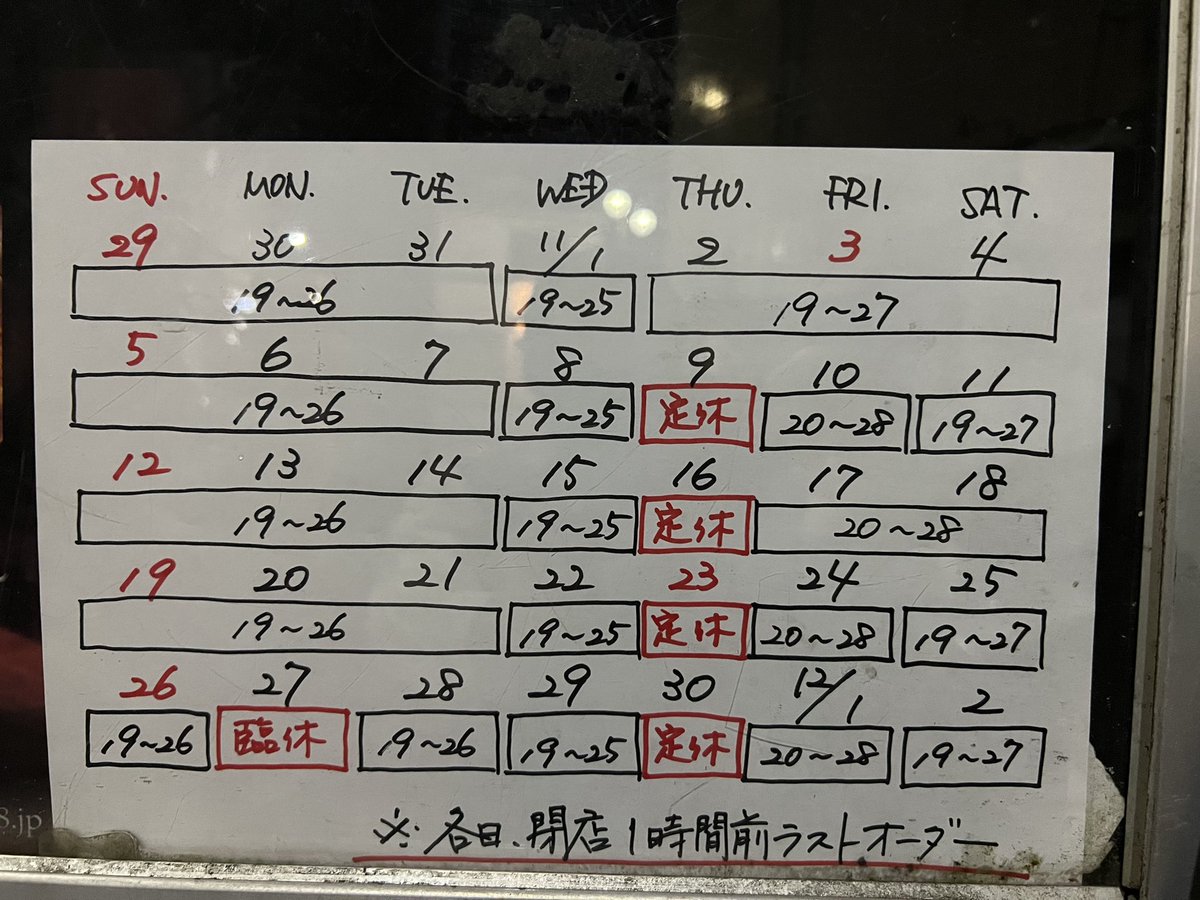 SUN. MON. TUE. WED THU. FRI. SAT.
29 30 31 11/1 2 3 4
19~26 19~25 19~27
5 6 7 8 9 10 11
19~26 19~25 定休 20~28 19~27
12 13 14 15 16 17 18
19~26 19~25 定休 20~28
19 20 21 22 23 24 25
19~26 19~25 定休 20~28 19~27
26 27 28 29 30 12/1 2
19~26 臨休 19~26 19~25 定休 20~28 19~27
8.jp
※.各日、閉店1時間前ラストオーダー